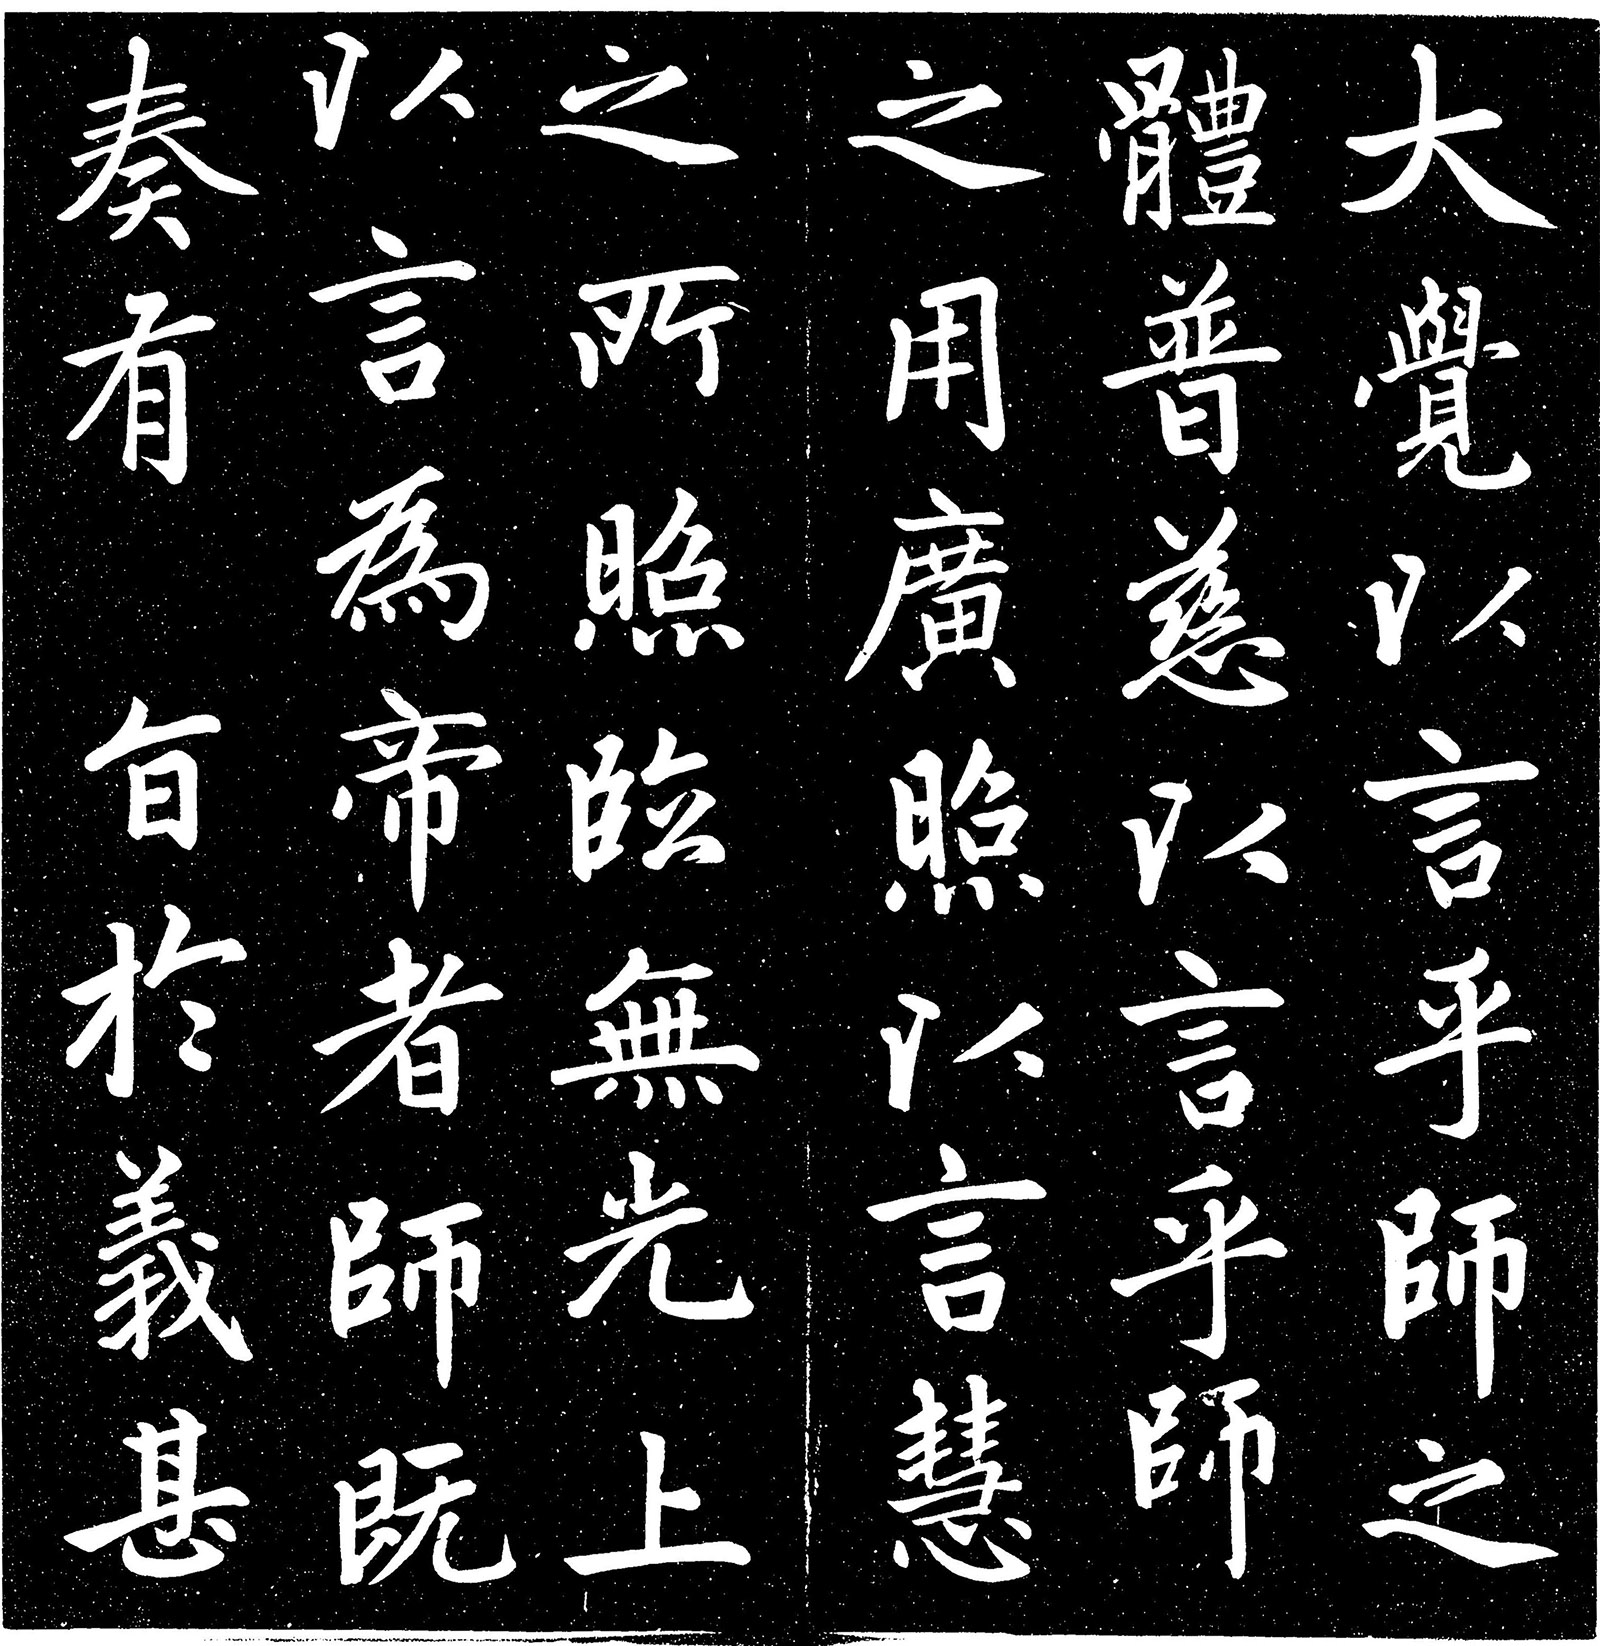 大覺以言乎師之
體普慈以言乎師
之用廣照以言慧
之所照臨無光上
以言為帝者師既
奏有 旨於義甚